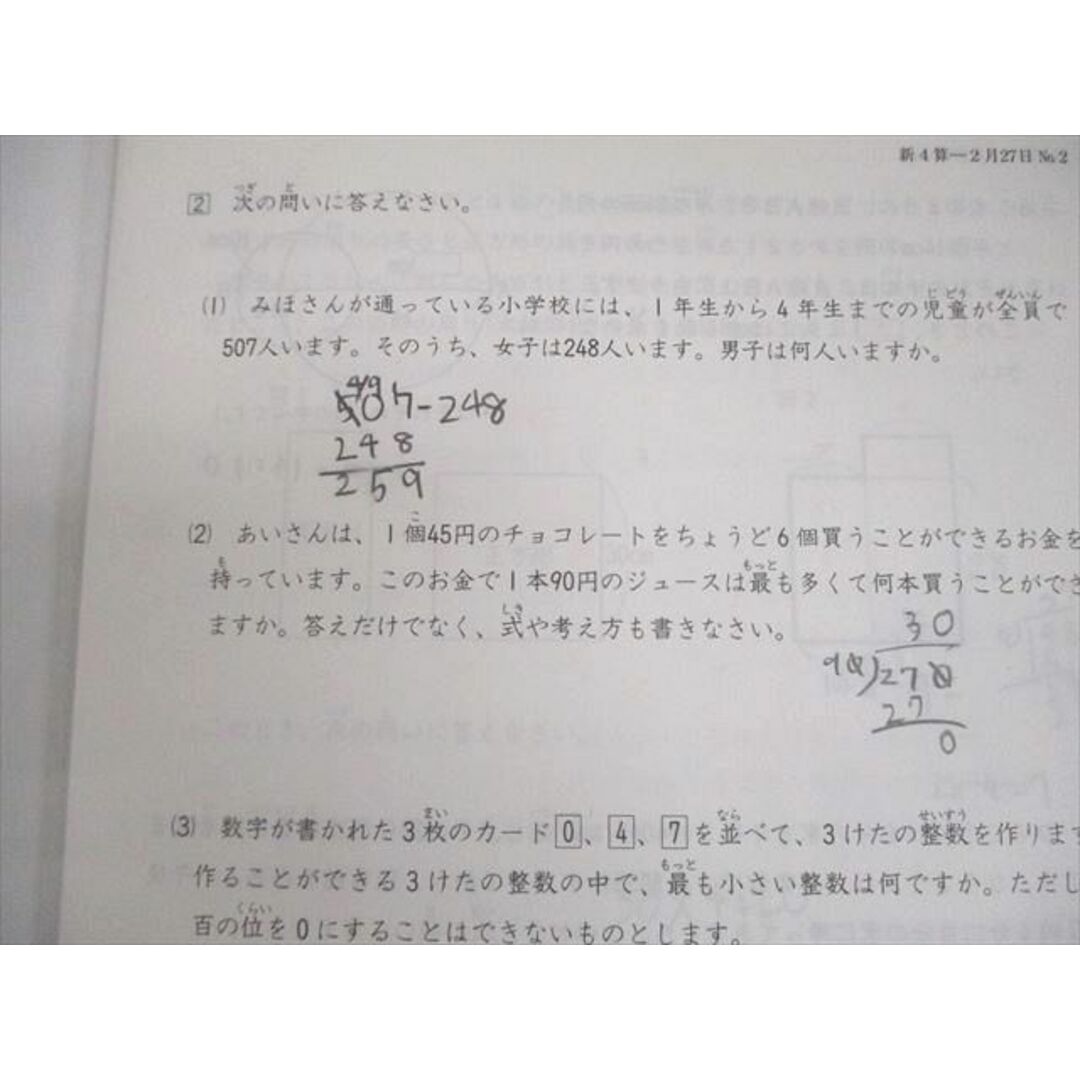 新4算―2月27日 №2
2 次の問いに答えなさい。
(1) みほさんが通っている小学校には、1年生から4年生までの児童が全員で
507人います。そのうち、女子は248人います。男子は何人いますか。
49
507-248
248
259
(2) あいさんは、1個45円のチョコレートをちょうど6個買うことができるお金を
持っています。このお金で1本90円のジュースは最も多くて何本買うことができ
ますか。答えだけでなく、式や考え方も書きなさい。
30
90)270
27
0
(3) 数字が書かれた3枚のカード0、4、7を並べて、3けたの整数を作ります
作ることができる3けたの整数の中で、最も小さい整数は何ですか。ただし
百の位を0にすることはできないものとします。